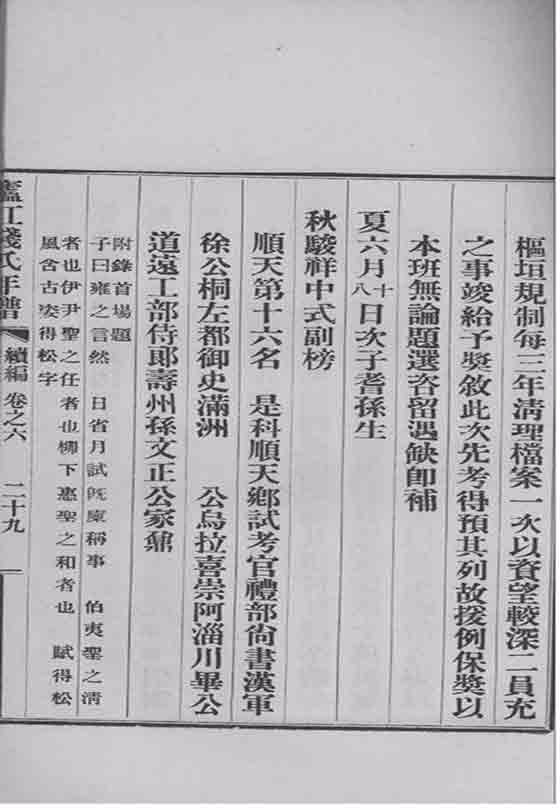 樞垣規制每三年清理檔案一次以資望較深二員充
之事竣給予獎敘此次先考得預其列故援例保獎以
本班無論題選咨留遇缺即補
夏六月十八日次子耆孫生
秋駿祥中式副榜
順天第十六名 是科順天鄉試考官禮部尙書漢軍
徐公桐左都御史滿洲 公烏拉喜崇阿淄川畢公
道遠工部侍郎壽州孫文正公家鼐
附錄首場題
子曰雍之言然 日省月試旣廩稱事 伯夷聖之淸
者也伊尹聖之任者也柳下惠聖之和者也 賦得松
風含古姿得松字
廬江錢氏年譜 續編 卷之六 二十九